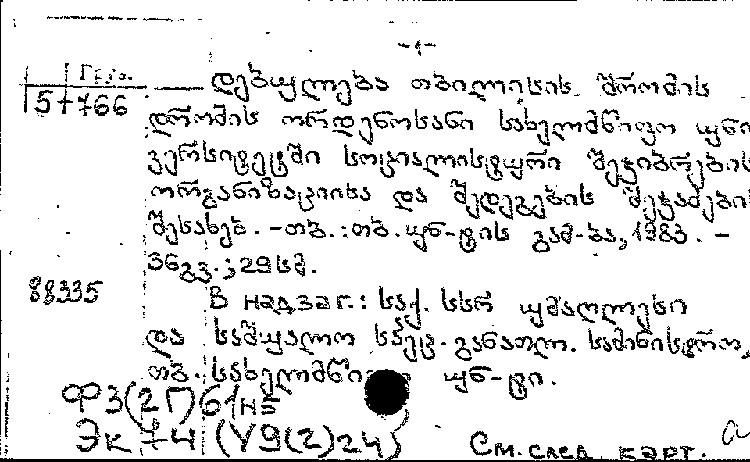 -1-
Груз.
57766
დებულება თბილისის შრომის
დროშის ორდენოსანი სახელმწიფო უნი
ვერსიტეტში სოციალისტური შეჯიბრების
ორგანიზაციისა და შედეგების შეჯამების
შესახებ. -თბ.:თბ.უნ-ტის გამ-ბა, 1983. -
36გვ.; 29სმ.
88335
В надзаг.: საქ. სსრ უმაღლესი
და საშუალო სპეც. განათლ. სამინისტრო,
თბ. სახელმწი უნ-ტი.
Ф3(2Г)61н5
Эк 74 (У9(2)24)
См. след карт.